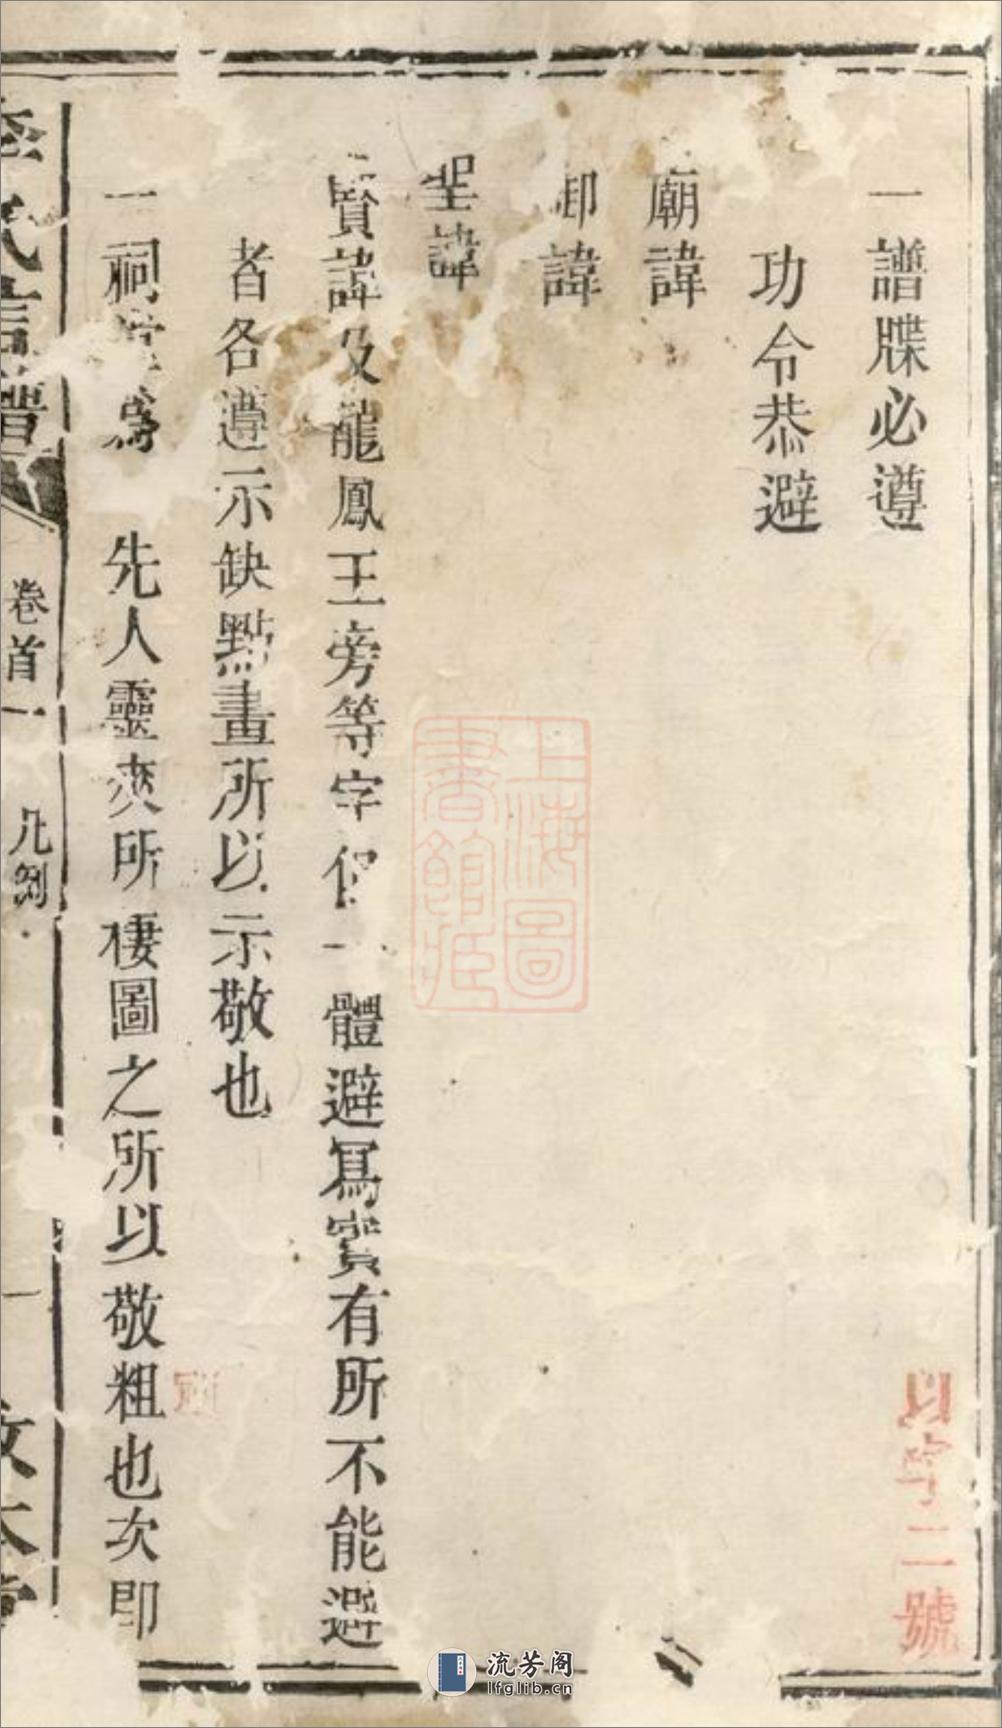 一譜牒必遵
功令恭避
廟諱
御諱
聖諱
賢諱及龍鳳王旁等字俱一體避寫實有所不能避
者各遵示缺點畫所以示敬也
一祠堂為 先人靈爽所棲圖之所以敬祖也次即
氏宗譜 卷首一 凡例 一 敦本堂
以字二號
上海圖書館藏
流芳阁
lfglib.cn